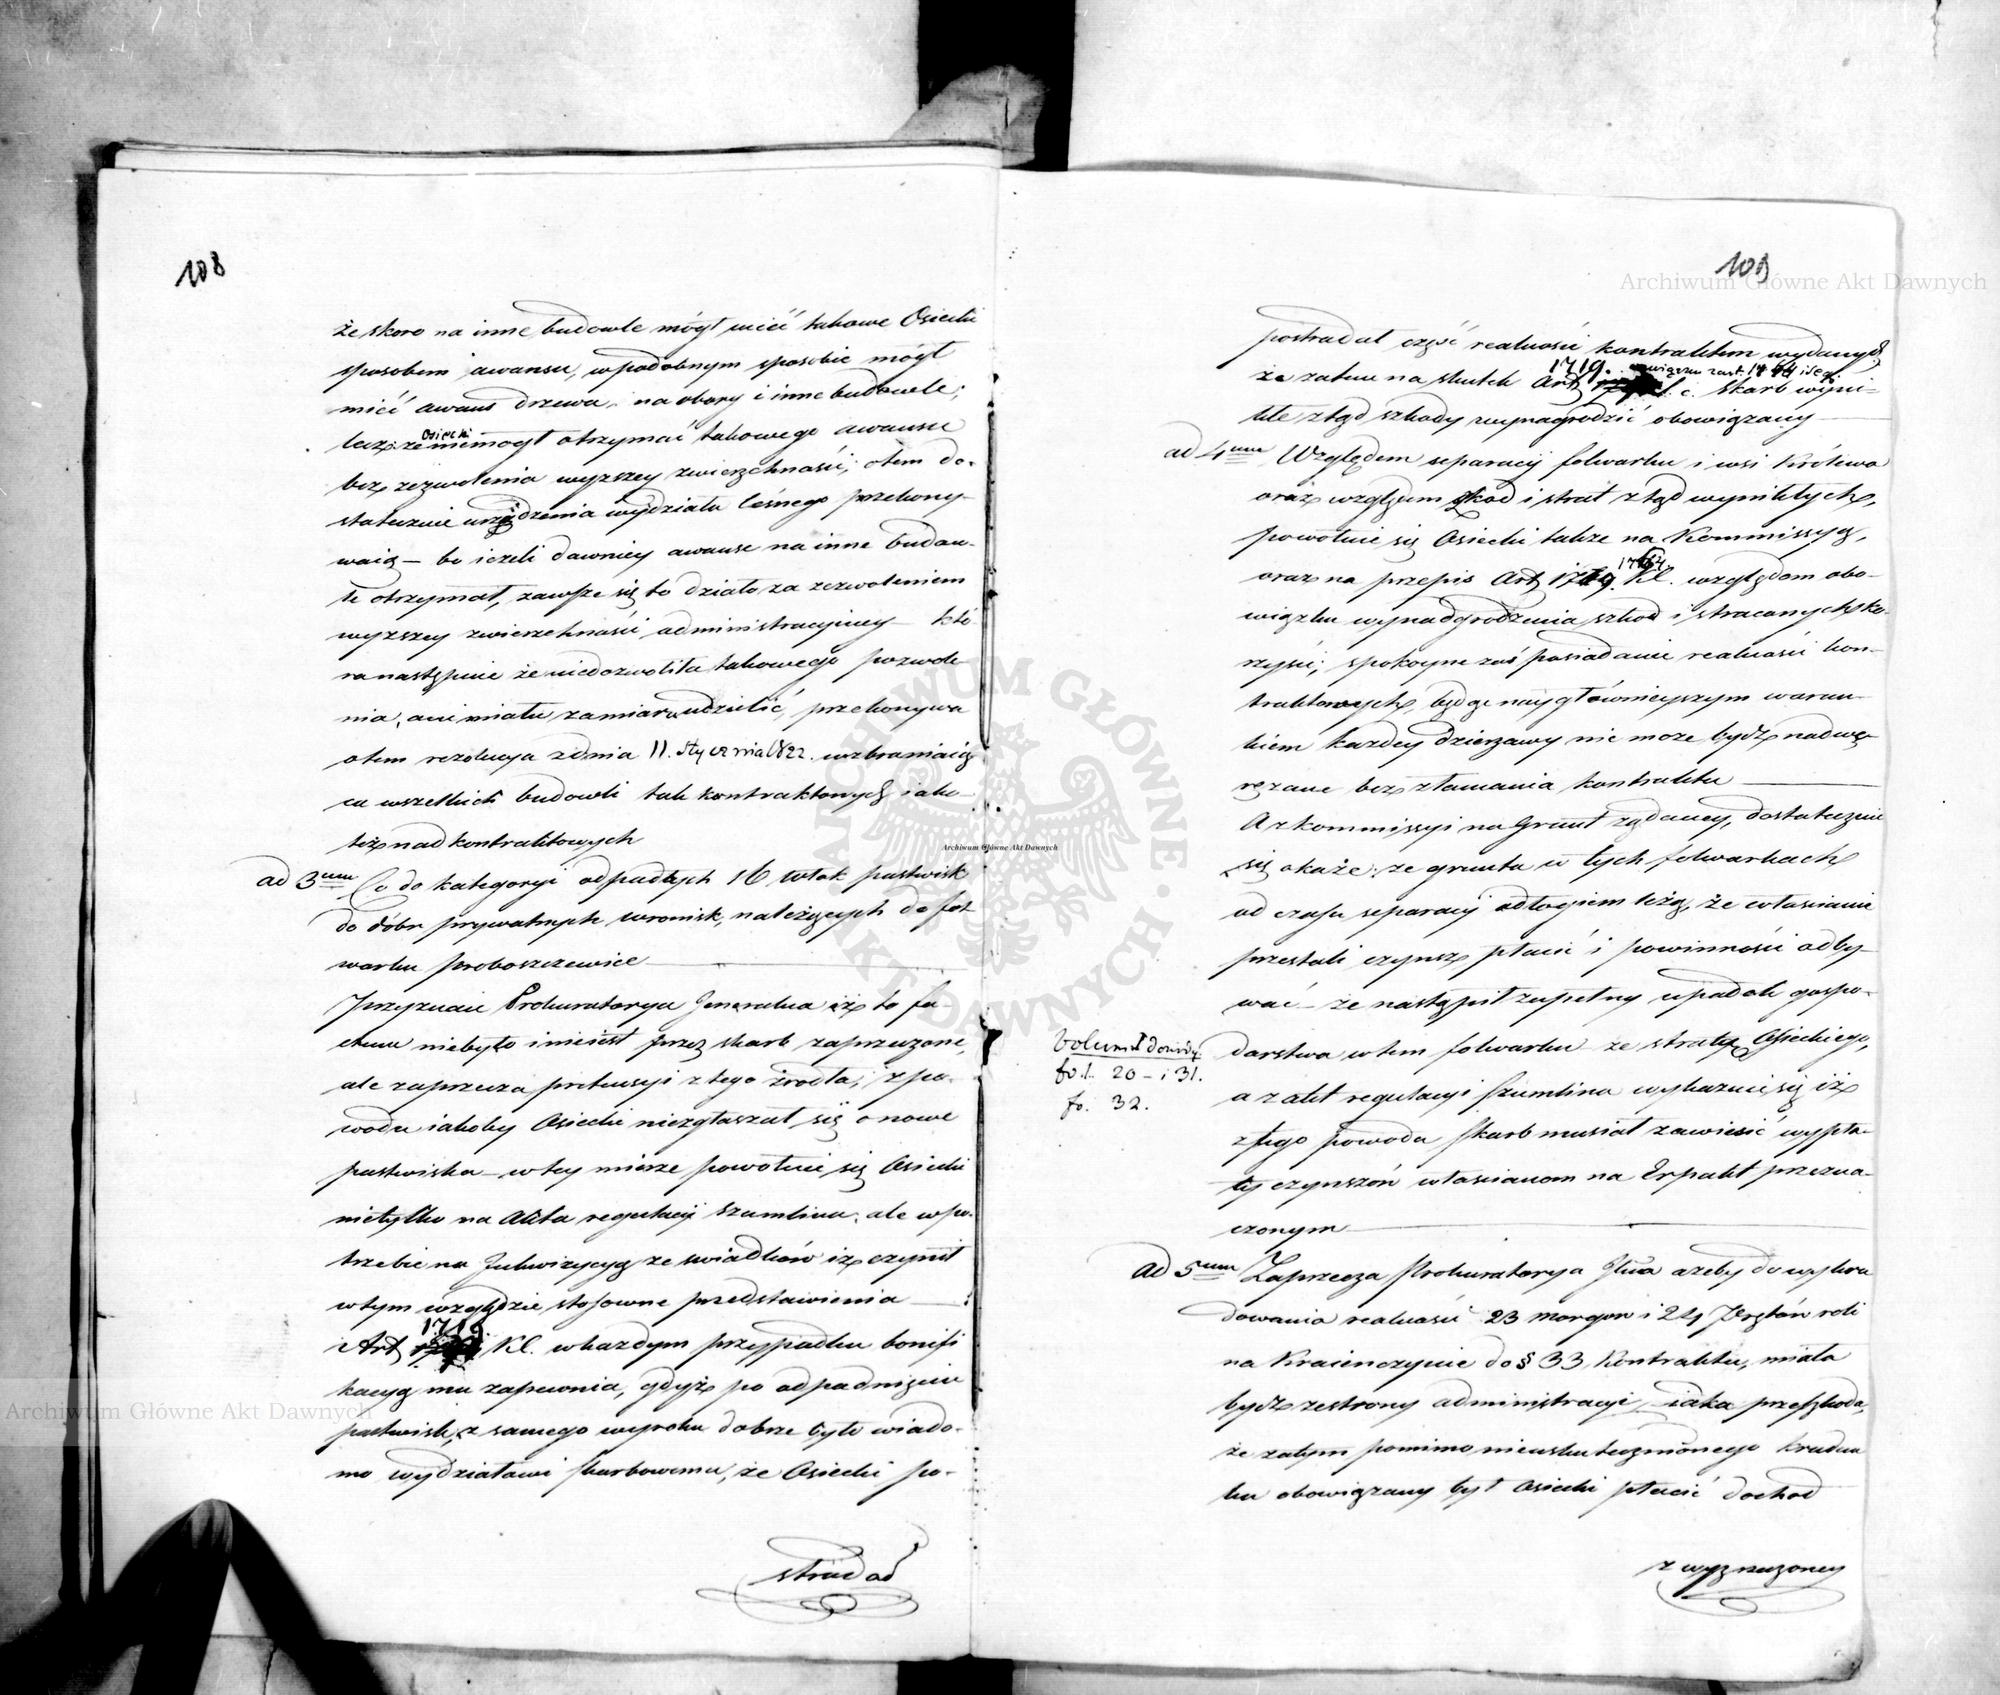 108
że skoro na inne budowle mógł mieć takowe Osiecki
sposobem awansu, w podobnym sposobie mógł
mieć awans drzewa na obory i inne budowle;
lecz że Osiecki niemógł otrzymać takowego awansu
bez zezwolenia wyższey zwierzchności, otem do-
statecznie urządzenia wydziału leśnego przekony-
waią – bo ieżeli dawniey awanse na inne budow-
le otrzymał, zawsze się to działo za zezwoleniem
wyższey zwierzchności administracyiney – któ
ra następnie że niedozwoliła takowego pozwole
nia, ani miała zamiaru udzielić, przekonywa
otem rezolucya z dnia 11. Stycznia 1822. wzbraniaią
ca wszelkich budowli tak kontraktowych iako
też nad kontraktowych
ad 3um Co do kategoryi odpadłych 16 włok pastwisk
do dóbr prywatnych wronisk, należących do fol
warku Proboszczewice
Przyznaie Prokuratorya Jeneralna iż to fa-
ctum niebyło i nieiest przez skarb zaprzeczone,
ale zaprzecza pretensyi z tego źrodła, z po-
wodu iakoby Osiecki niezgłaszał się o nowe
pastwiska – w tey mierze powołuie się Osiecki
nietylko na Akta regulacyi Szumlina, ale w po-
trzebie na Inkwizycyą ze swiadków iż czynił
w tym względzie stosowne przedstawienia
i Art 1719 KC. w każdym przypadku bonifi
kacyą mu zapewnia, gdyż po odpadnięciu
pastwisk, z samego wyroku dobrze było wiado-
mo wydziałowi skarbowemu, że Osiecki po-
stradał
109
postradał część realności kontraktem wydanych
że zatem na skutek Art 1719. w związku z art. 17 i seq. K. c. Skarb wyni-
kłe ztąd szkody wynagrodzić obowiązany
ad 4um Względem separacyi folwarku i wsi Królewo
oraz względem szkod i strat ztąd wynikłych,
powołuie się Osiecki także na Kommissyą,
oraz na przepis Art 1719. KC. względem obo-
wiązku wynadgrodzenia szkod i straconych ko-
rzyści; spokoyne zaś posiadanie realności kon-
traktowych, będąc naygłównieyszym warun-
kiem każdey dzierzawy nie może bydź nadwę-
rężane bez złamania kontraktu
A z kommissyi na Grunt żądaney, dostatecznie
się okaże, że grunta w tych folwarkach
od czasu separacyi odłogiem leżą, że włościanie
przestali czynsz płacić i powinności odby-
wać – że nastąpił zupełny upadek gospo-
darstwa w tem folwarku ze stratą Osieckiego,
Volumen dowody
fo. l. 20 – i 31.
fo. 32.
a z akt regulacyi Szumlina wykazuie się iż
z tego powodu skarb musiał zawiesić wypła-
ty czynszów włościanom na Erpakt przezna-
czonym
Ad 5um Zaprzecza Prokuratorya Jlna ażeby do wykra
dowania realności 23 morgow i 24 Prętów roli
na Kraienczynie do § 33 Kontraktu, miała
bydź ze strony administracyi iaka przeszkoda,
że zatym pomimo nieuskutecznionego kradun
ku obowiązany był Osiecki płacić dochod
z wyznaczoney
Archiwum Główne Akt Dawnych
ARCHIWUM GŁÓWNE AKT DAWNYCH
Archiwum Główne Akt Dawnych
Archiwum Główne Akt Dawnych